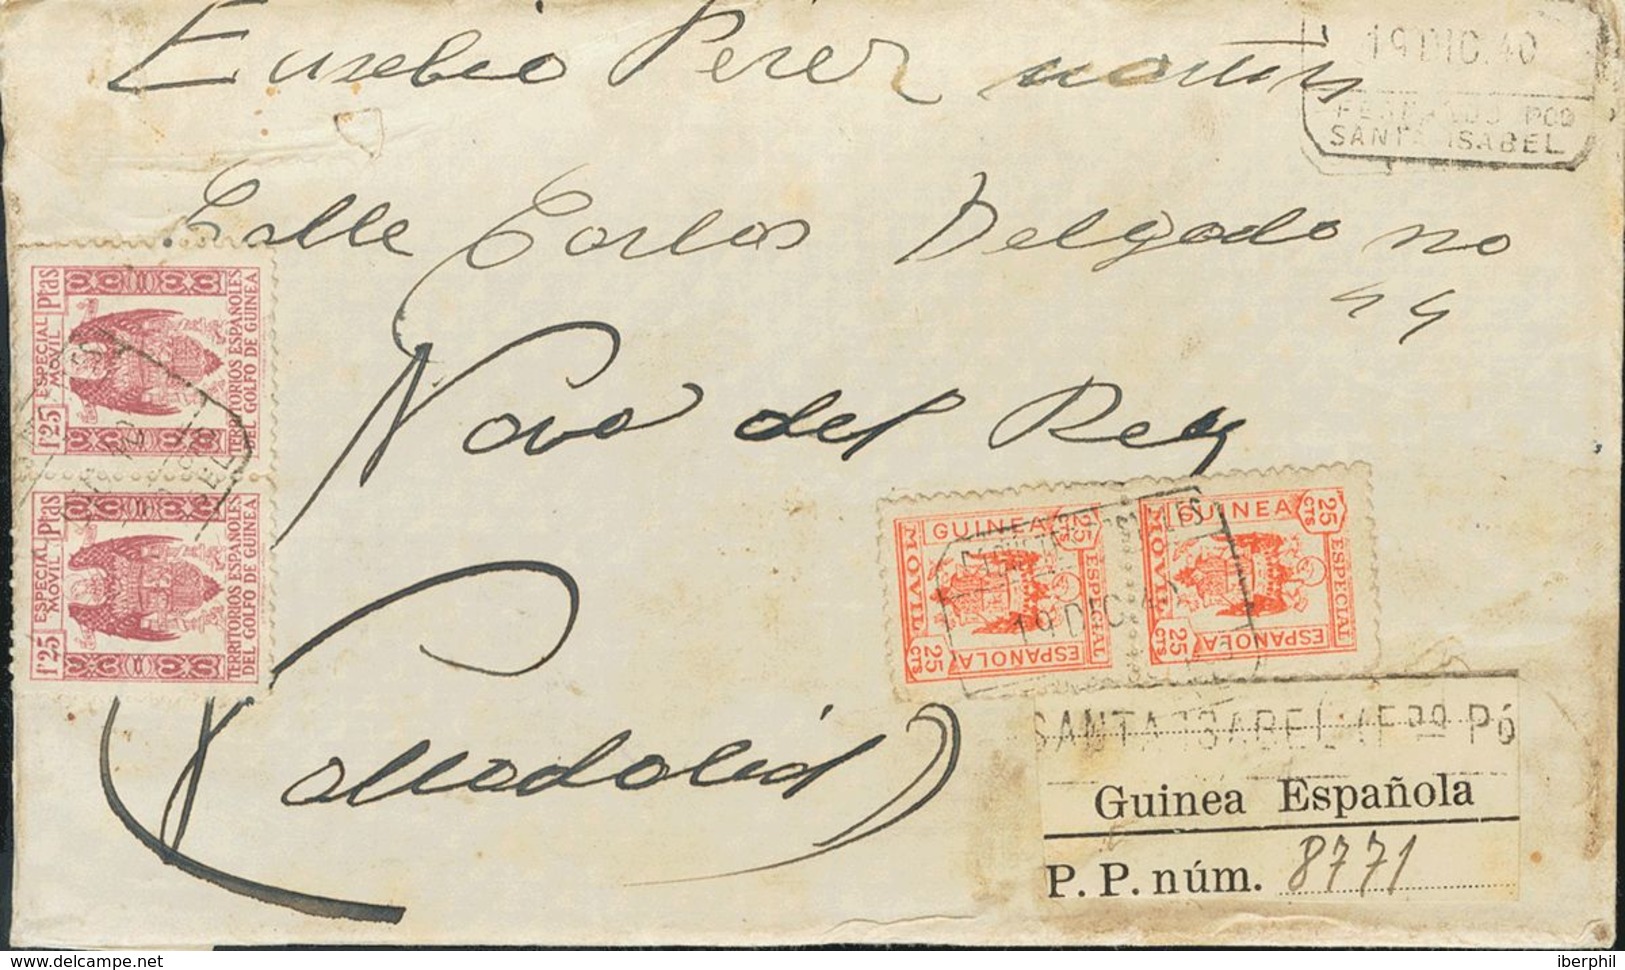 Eusebio Perez
19 DIC. 40
FERNANDO POO
SANTA ISABEL
Calle Carlos Delgado no
44
Nava del Rey
(Valladolid)
ESPECIAL MOVIL
1'25 Ptas
TERRITORIOS ESPAÑOLES
DEL GOLFO DE GUINEA
ESPECIAL MOVIL
1'25 Ptas
TERRITORIOS ESPAÑOLES
DEL GOLFO DE GUINEA
GUINEA
25 CTS
MOVIL
ESPECIAL
25 CTS
ESPAÑOLA
GUINEA
25 CTS
MOVIL
ESPECIAL
25 CTS
ESPAÑOLA
19 DIC. 40
SANTA ISABEL (F do Pó
Guinea Española
P. P. núm. 8771
www.delcampe.net
iberphil